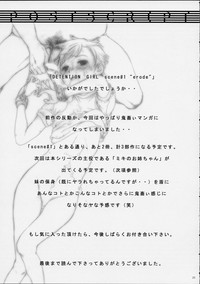 POSTSCRIPT
「DETENTION GIRL "scene#1 "erode"」
いかがでしたでしょうか・・
前作の反動か、今回はやっぱり鬼畜いマンガに
なってしまいました・・
「scene#1」とある通り、あと2冊、計3部作になる予定です。
次回は本シリーズの主役である「ミキのお姉ちゃん」が
出てくる予定です。(次頁参照)
妹の保身(既にヤラれちゃってるんですが・・)を盾に
あんなコトとかこんなコトとかでさらに鬼畜い感じに
なりそうなヤな予感です(笑)
もし気に入った頂けたら、今後しばらくお付き合い下さい。
最後まで読んで下さってありがとうございました。